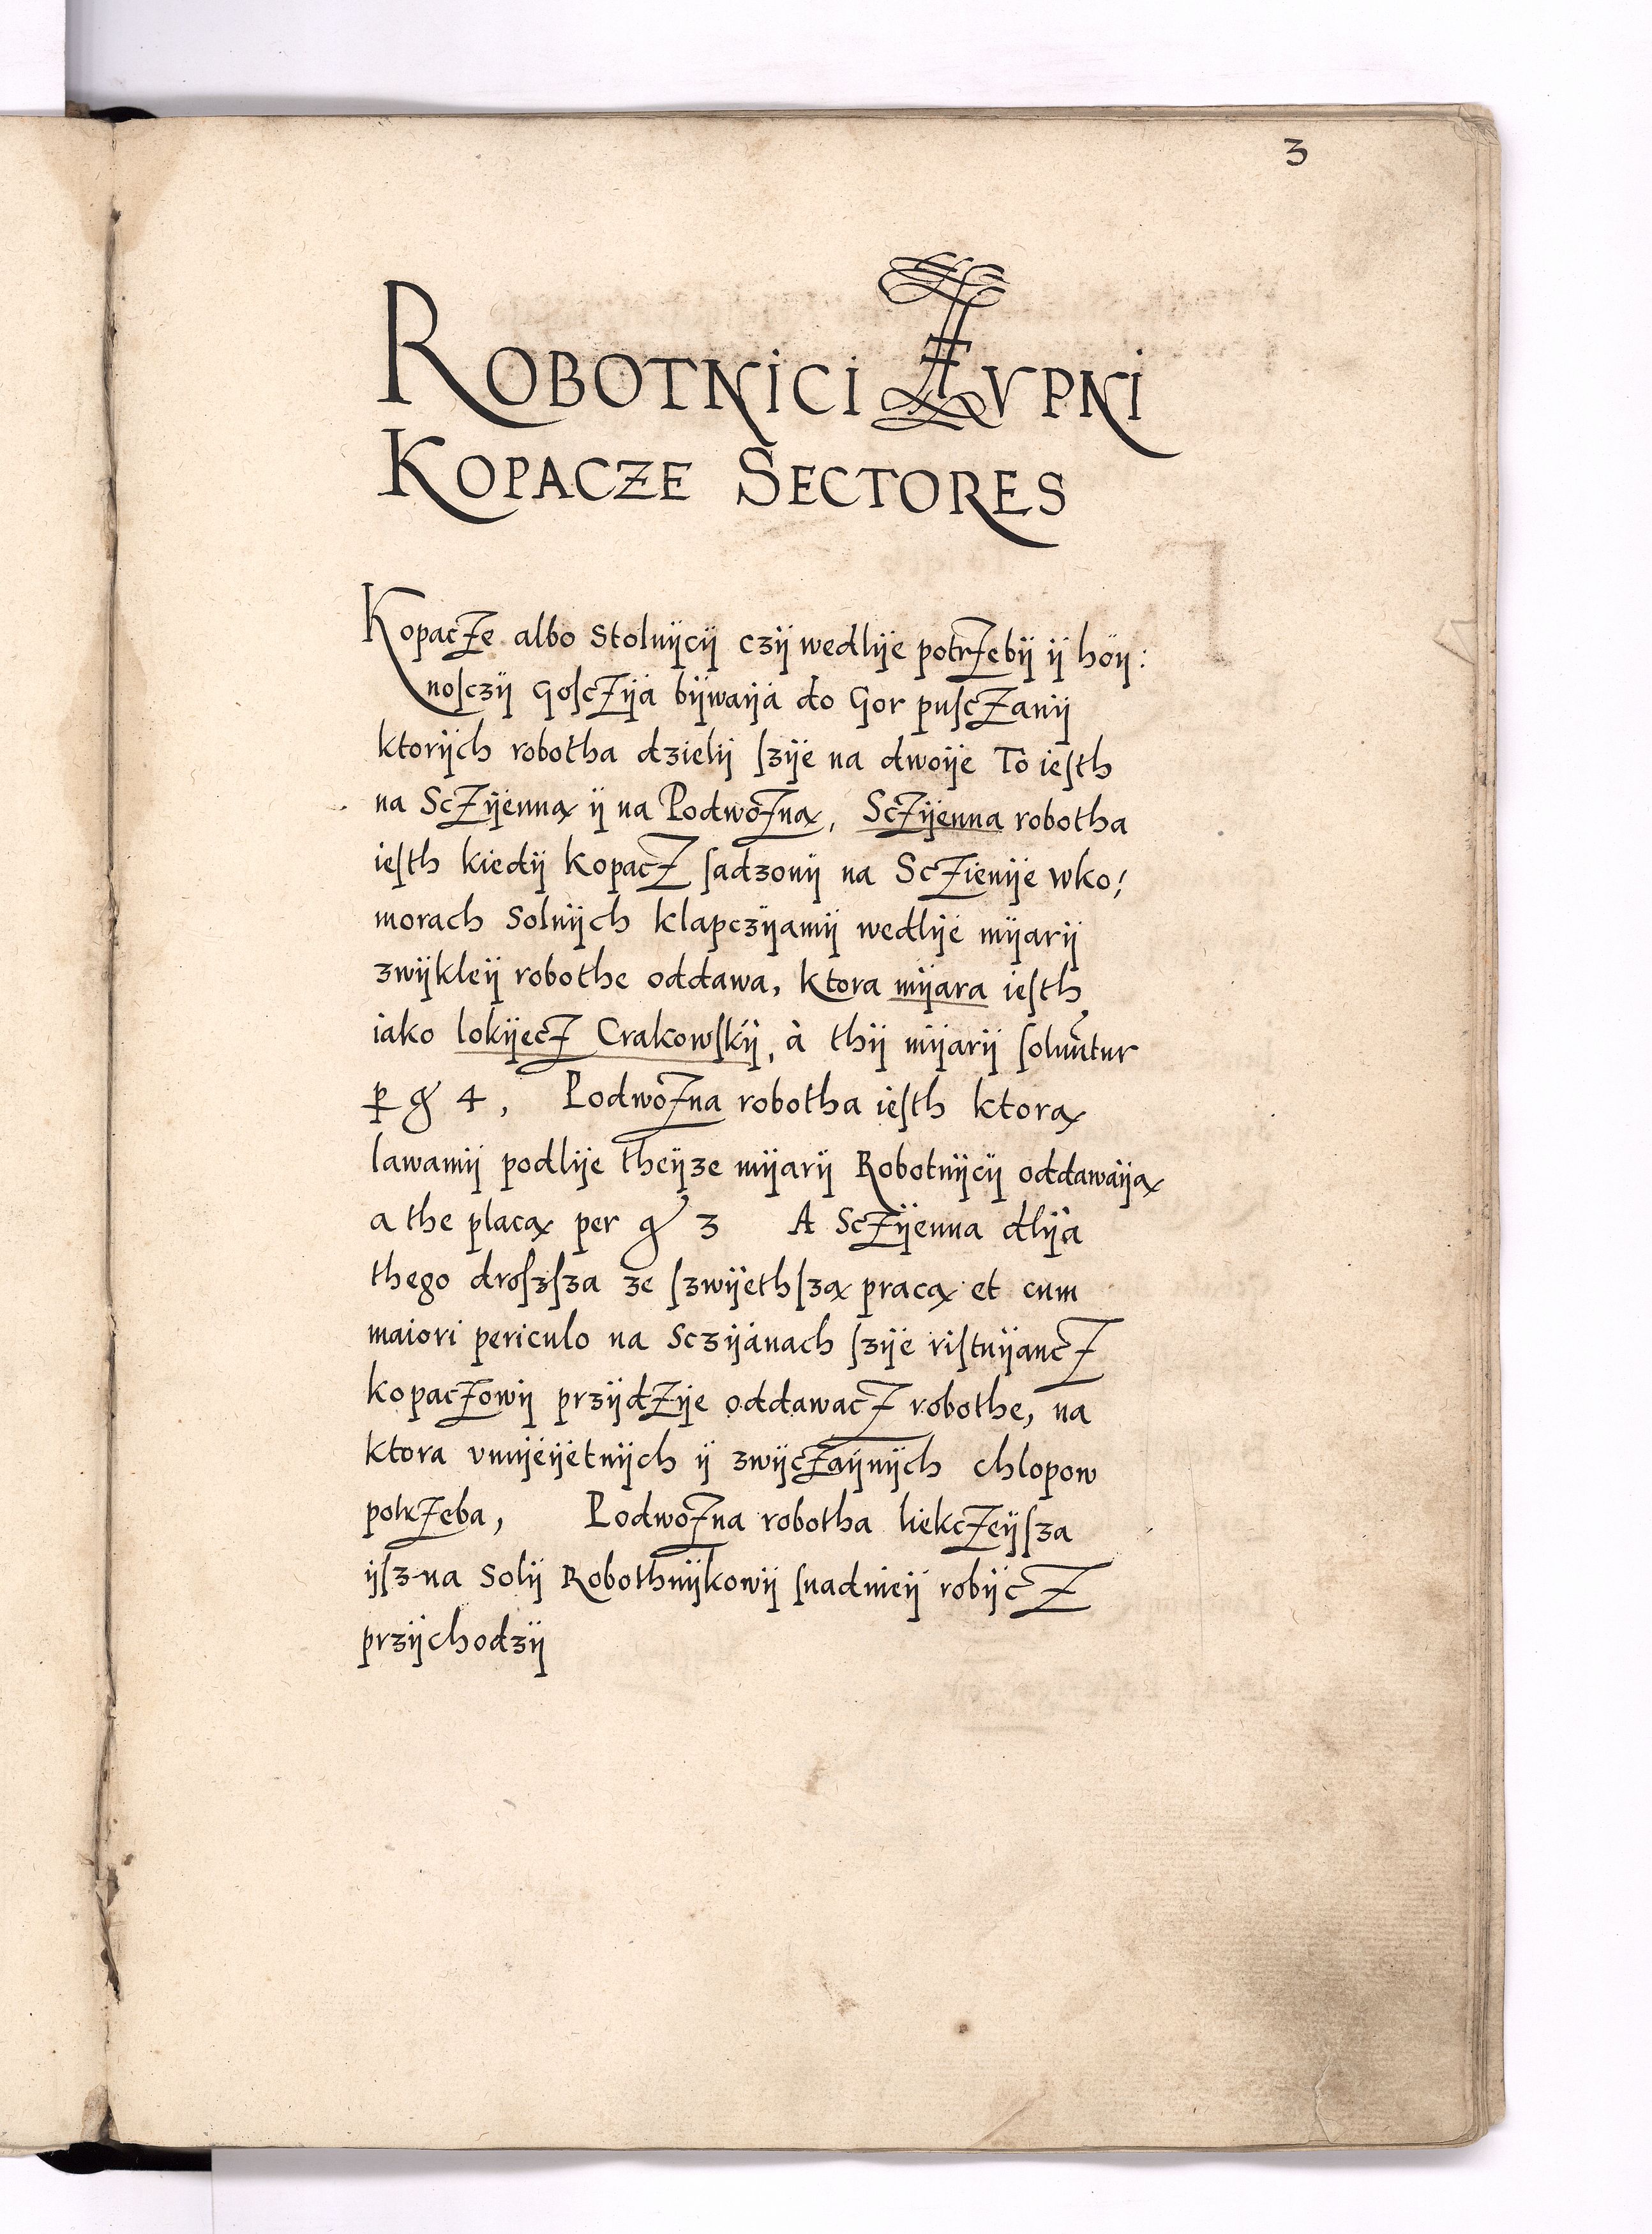 3
ROBOTNICI ZVPNI
KOPACZE SECTORES
Kopacze albo Stolnÿcÿ czÿ wedlÿe potrzebÿ ÿ höÿ:
noſczÿ Goſczÿa bÿwaÿa do Gor puſczanÿ
ktorÿch robotha dzielÿ ſzÿe na dwoÿe To ieſth
na Sczÿenna̧ ÿ na Podwozna̧, Sczÿenna robotha
ieſth kiedÿ kopacz ſadzonÿ na Sczienÿe wko/
morach Solnÿch klapczÿamÿ wedlÿe mÿarÿ
zwÿkleÿ robothe oddawa, ktora mÿara ieſth
iako lokÿecz Crakowſkÿ, à thÿ mÿarÿ ſoluuntur
ꝑ gͬ 4, Podwozna robotha ieſth ktora̧
lawamÿ podlÿe theÿze mÿarÿ Robotnÿcÿ oddawaÿa̧
a the placa̧ per gͬ 3 A Sczÿenna dlÿa
thego droſzſza ze ſzwÿethſza̧ praca̧ et cum
maiori periculo na Sczÿanach ſzÿe riſtnÿancz
kopaczowÿ przÿdzÿe oddawacz robothe, na
ktora vmÿeÿetnÿch ÿ zwÿczaÿnÿch chlopow
potrzeba, Podwozna robotha liekczeÿſza
ÿſz na Solÿ Robothnÿkowÿ ſnadnieÿ robÿcz
przÿchodzÿ